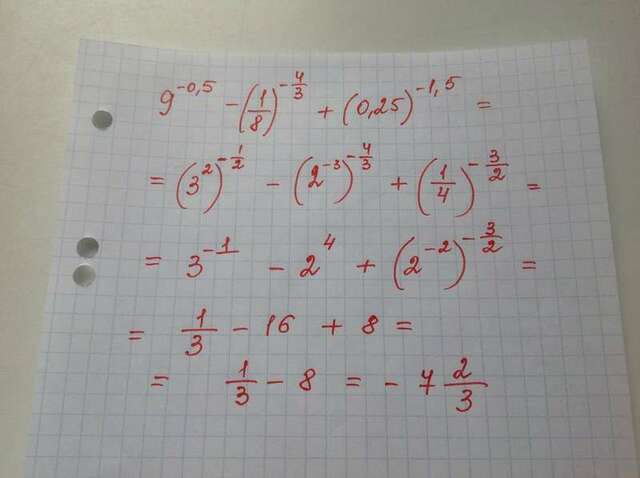 9^{-0,5} - (1/8)^{-4/3} + (0,25)^{-1,5} =
= (3^2)^{-1/2} - (2^{-3})^{-4/3} + (1/4)^{-3/2} =
= 3^{-1} - 2^4 + (2^{-2})^{-3/2} =
= 1/3 - 16 + 8 =
= 1/3 - 8 = -7 2/3